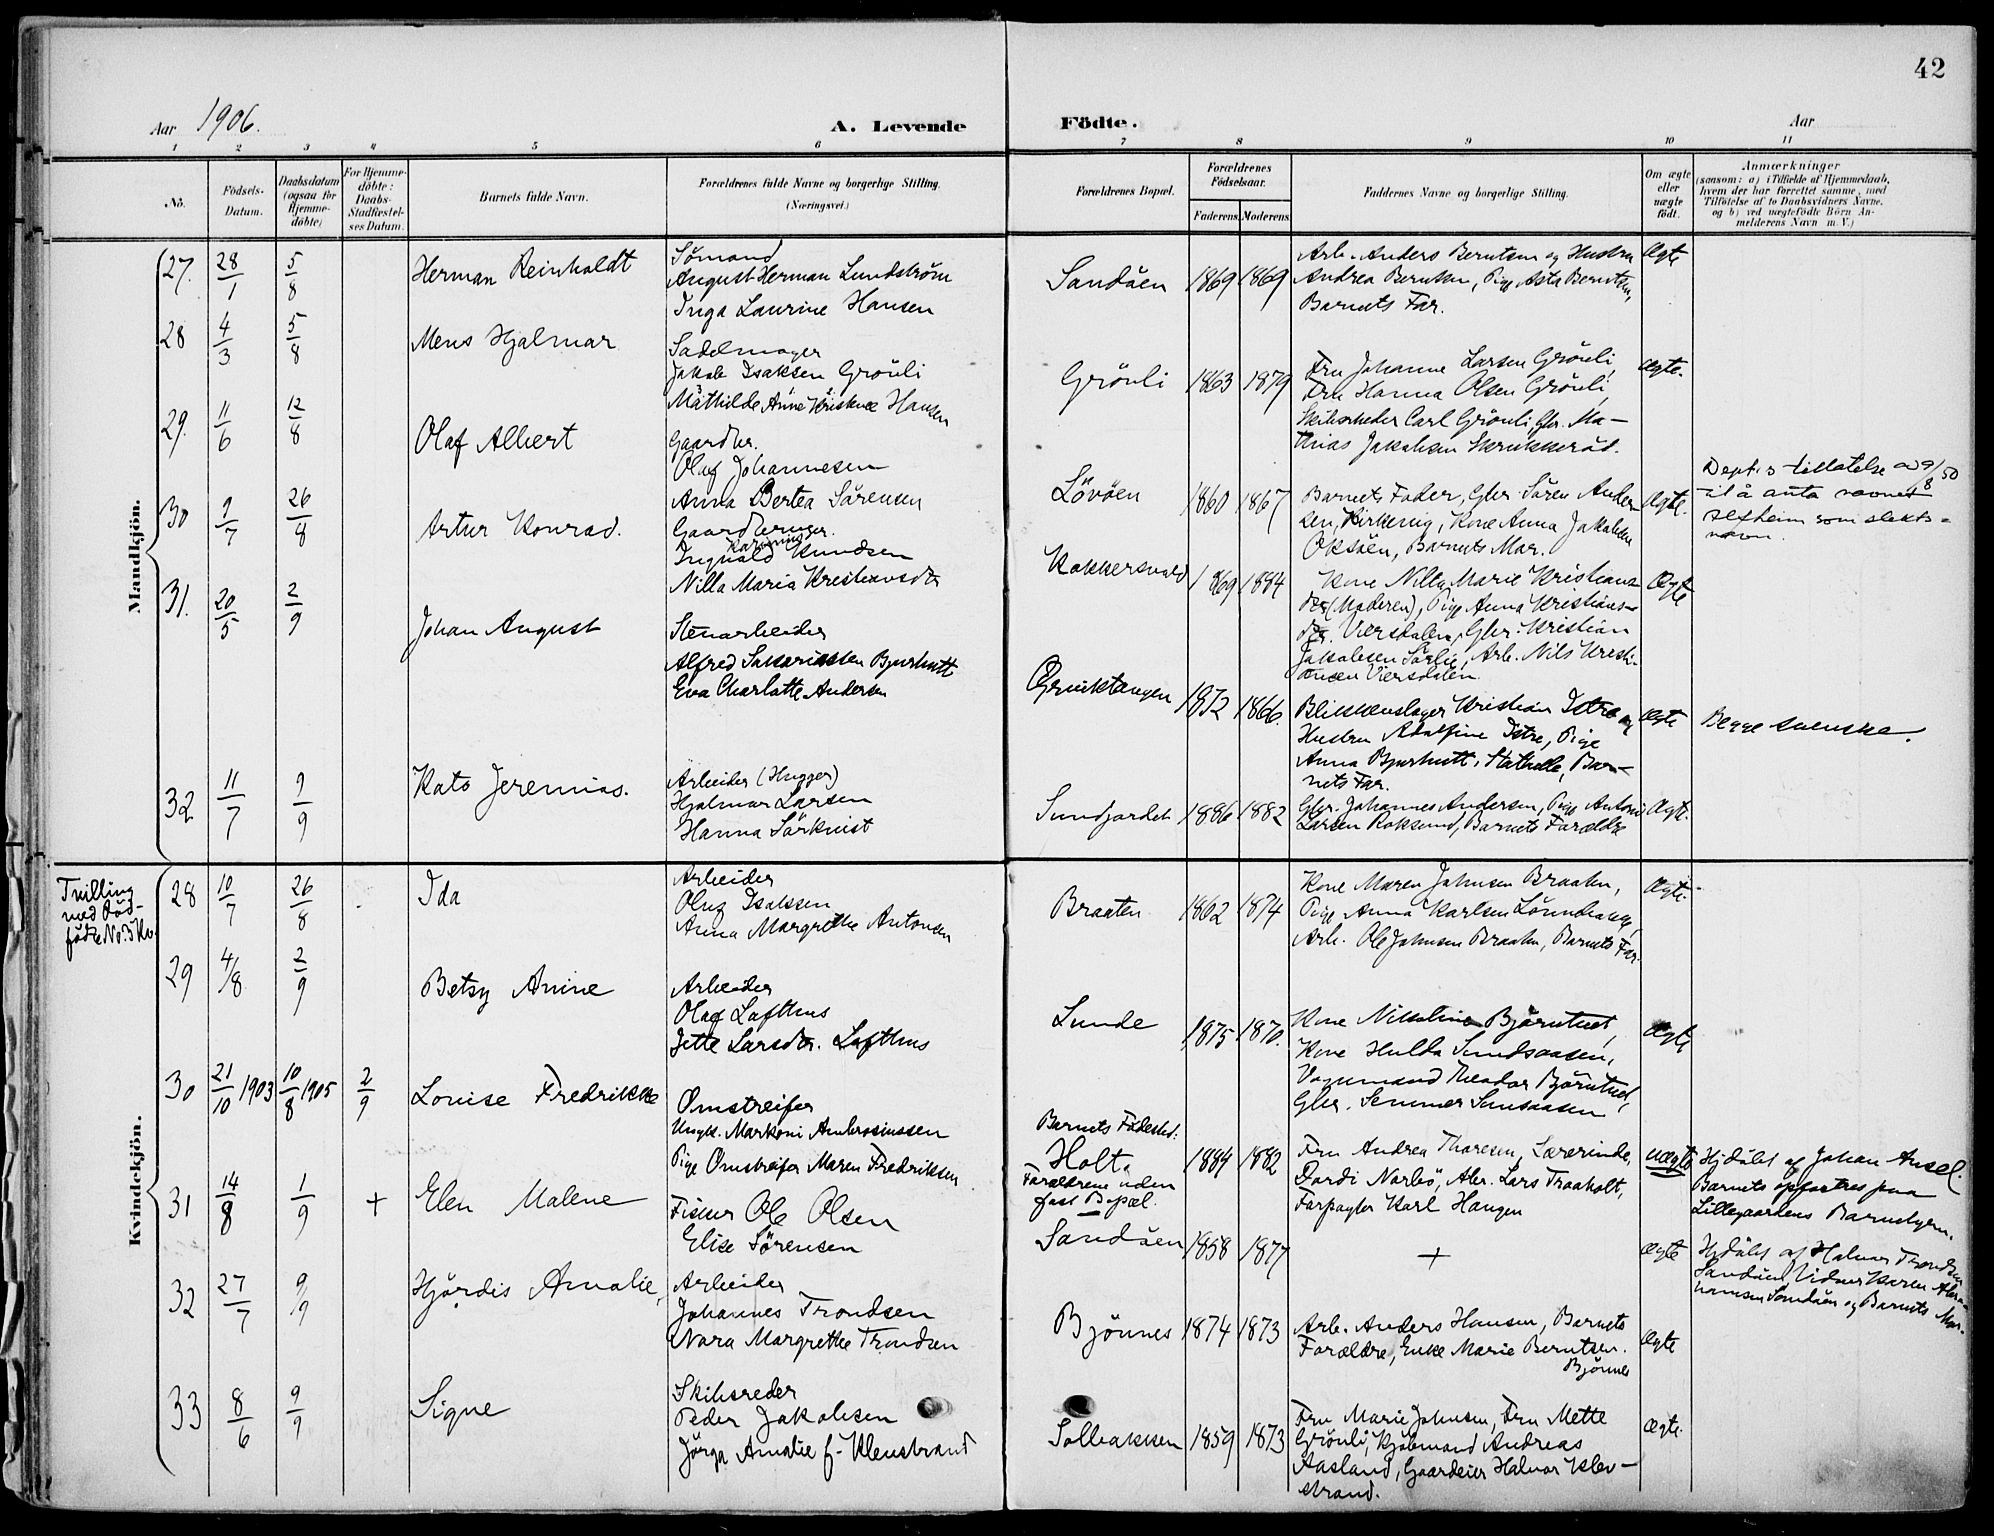 42
Aar 1906.
A. Levende Födte.
Aar
1 2 3 4 5 6 7 8 9 10 11
No.
Födsels-Datum.
Daabsdatum (ogsaa for Hjemme-döbte)
For Hjemme-döbte: Daabs-Stadfæstel-ses Datum.
Barnets fulde Navn.
Forældrenes fulde Navne og borgerlige Stilling. (Næringsvei.)
Forældrenes Bopæl.
Forældrenes Födselsaar.
Faderens. Moderens.
Faddernes Navne og borgerlige Stilling.
Om ægte eller uægte födt.
Anmærkninger
(saasom: a) i Tilfælde af Hjemmedaab,
hvem der har forrettet samme, med
Tilföielse af to Daabsvidners Navne,
og b) ved uægtefödte Börn An-
melderens Navn m. V.)
Mandkjön.
27. 28/1 5/8 Herman Reinholdt
Sömand
August Herman Lundström
Inga Laurine Hansen
Sandöen 1869 1869
Arb. Anders Berntsen og Hustru
Andrea Berntsen, Pige Asta Berntsen,
Barnets Far.
Ægte
28 4/3 5/8 Mens Hjalmar
Sadelmager
Jakob Isaksen Grönli
Mathilde Anne Kristine Hansen
Grönli 1863 1879
Fru Johanne Larsen Grönli,
Frk Hanna Olsen Grönli,
Carl Grönli, Gbr. Ma-
thias Jakobsen Skrukkeröd.
Ægte.
29. 11/6 12/8 Olaf Albert
Gaardbr.
Olaf Johannesen
Anna Bertea Sörensen
Lövöen 1860 1867
Barnets Fader, Gbr. Sören Ander-
sen, Birkevig, Kone Anna Jakobsen
Oksöen, Barnets Mor.
Ægte.
Dept.s tillatelse av 9/8 50
til å anta navnet
som slekts-
navn.
30 9/7 26/8 Artur Konrad.
Gaardbruger.
Karenius
Ingvald Knudsen
Nilla Maria Kristiansdtr
Kokkersvold 1869 1884
Kone Nilla Marie Kristians-
dtr (Moderen), Pige Anna Kristians-
dtr. Viersdalen, Gbr. Kristian
Jakobsen Sörlie, Arb. Nils Kristi-
ansen Viersdalen.
Ægte
31. 20/5 2/9 Johan August
Stenarbeider
Alfred Sakariassen Bjurhutt
Eva Charlotte Andersen
Gruiktangen 1872 1866.
Blikkenslager Kristian Istre og
Hustru Adolfine Istre, Pige
Anna Bjurhutt, Stathelle, Bar-
nets Far.
Ægte
Begge svenske.
32 11/7 9/9 Kato Jeremias.
Arbeider (Hugger)
Hjalmar Larsen
Hanna Sörkvist
Sundjordet 1886 1882
Gbr. Johannes Andersen, Pige Antoni
Larsen Roksund, Barnets Forældre
Ægte.
Kvindekjön.
Tvilling
med död-
födte No. 3 Kv.
28 10/7 26/8 Ida
Arbeider
Oluf Isaksen
Anna Margrethe Antonsen
Braaten 1862 1874
Kone Maren Johnsen Braaten,
Pige Anna Karlsen,
Arb. Ole Johnsen Braaten, Barnets Far.
Ægte.
29 4/8 2/9 Betsy Anine
Arbeider
Olaf Lofthus
Jette Larsdtr. Lofthus
Lunde 1875 1870.
Kone Nikoline Björntvet,
Kone Hulda Sundsaasen,
Theodor Björntvet,
Gbr.
Ægte
30 21/10 1903 10/8 1905 2/9 Louise Fredrikke
Omstreifer
Ungk. Markoni Ambrosiussen
Pige Omstreifer Maren Fredriksen
Barnets Födested:
Holt.
Forældrene uden
fast Bopæl.
1884 1882
Fru Andrea Thoresen, Lærerinde
Dordi Narbö, Lars Traaholt,
Forpagter Karl Haugen
uægte
Hjdöbt af Johan Axsel.
Barnets opfostres paa
Lillegaardens Barnehjem.
31 14/8 1/9 + Elen Malene
Fisker Ole Olsen
Elise Sörensen
Sandöen 1858 1877 +
Ægte
Hjdöbt af Halvor Trondsen
Sandöen, Vidner Karen
Sandöen og Barnets Mor.
32 27/7 9/9 Hjördis Amalie,
Arbeider
Johannes Trondsen
Nora Margrethe Trondsen
Bjönnes 1874 1873
Arb. Anders Hansen, Barnets
Forældre, Enke Marie Berntsen.
Bjönnes
Ægte
33 8/6 9/9 Signe
Skibsreder
Peder Jakobsen
Jörga Amalie f. Klevstrand
Solbakken 1859 1873
Fru Marie Johnsen, Fru Mette
Grönli, Kjöbmand Andreas
Aasland, Gaardeier Halvor Klev-
strand.
Ægte.